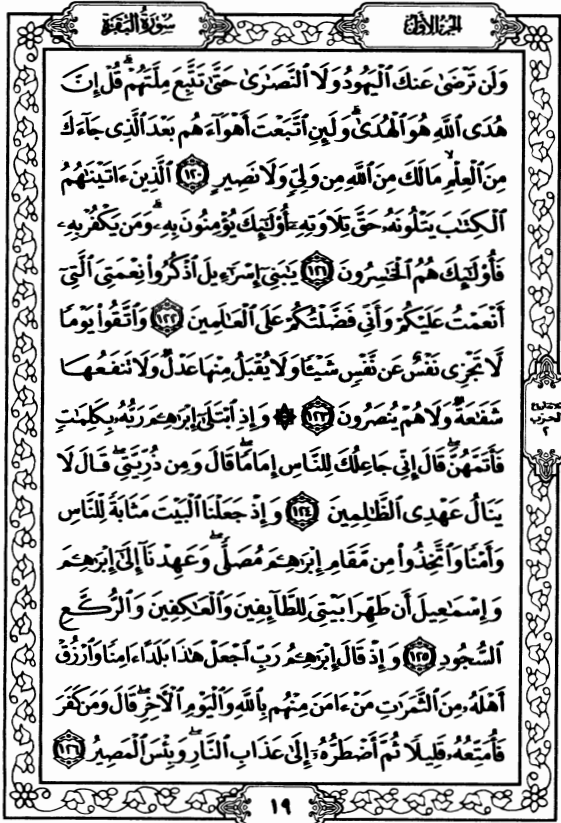 الجزء الأول
سورة البقرة
وَلَن تَرْضَىٰ عَنكَ ٱلْيَهُودُ وَلَا ٱلنَّصَٰرَىٰ حَتَّىٰ تَتَّبِعَ مِلَّتَهُمْ ۗ قُلْ إِنَّ
هُدَى ٱللَّهِ هُوَ ٱلْهُدَىٰ ۗ وَلَئِنِ ٱتَّبَعْتَ أَهْوَآءَهُم بَعْدَ ٱلَّذِى جَآءَكَ
مِنَ ٱلْعِلْمِ ۙ مَا لَكَ مِنَ ٱللَّهِ مِن وَلِىٍّ وَلَا نَصِيرٍ ١٢٠ ٱلَّذِينَ ءَاتَيْنَٰهُمُ
ٱلْكِتَٰبَ يَتْلُونَهُۥ حَقَّ تِلَاوَتِهِۦٓ أُو۟لَٰٓئِكَ يُؤْمِنُونَ بِهِۦ ۗ وَمَن يَكْفُرْ بِهِۦ
فَأُو۟لَٰٓئِكَ هُمُ ٱلْخَٰسِرُونَ ١٢١ يَٰبَنِىٓ إِسْرَٰٓءِيلَ ٱذْكُرُوا۟ نِعْمَتِىَ ٱلَّتِىٓ
أَنْعَمْتُ عَلَيْكُمْ وَأَنِّى فَضَّلْتُكُمْ عَلَى ٱلْعَٰلَمِينَ ١٢٢ وَٱتَّقُوا۟ يَوْمًا
لَّا تَجْزِى نَفْسٌ عَن نَّفْسٍ شَيْـًٔا وَلَا يُقْبَلُ مِنْهَا عَدْلٌ وَلَا تَنفَعُهَا
شَفَٰعَةٌ وَلَا هُمْ يُنصَرُونَ ١٢٣ ۞ وَإِذِ ٱبْتَلَىٰٓ إِبْرَٰهِـۧمَ رَبُّهُۥ بِكَلِمَٰتٍ
فَأَتَمَّهُنَّ ۖ قَالَ إِنِّى جَاعِلُكَ لِلنَّاسِ إِمَامًا ۖ قَالَ وَمِن ذُرِّيَّتِى ۖ قَالَ لَا
يَنَالُ عَهْدِى ٱلظَّٰلِمِينَ ١٢٤ وَإِذْ جَعَلْنَا ٱلْبَيْتَ مَثَابَةً لِّلنَّاسِ
وَأَمْنًا وَٱتَّخِذُوا۟ مِن مَّقَامِ إِبْرَٰهِـۧمَ مُصَلًّى ۖ وَعَهِدْنَآ إِلَىٰٓ إِبْرَٰهِـۧمَ
وَإِسْمَٰعِيلَ أَن طَهِّرَا بَيْتِىَ لِلطَّآئِفِينَ وَٱلْعَٰكِفِينَ وَٱلرُّكَّعِ
ٱلسُّجُودِ ١٢٥ وَإِذْ قَالَ إِبْرَٰهِـۧمُ رَبِّ ٱجْعَلْ هَٰذَا بَلَدًا ءَامِنًا وَٱرْزُقْ
أَهْلَهُۥ مِنَ ٱلثَّمَرَٰتِ مَنْ ءَامَنَ مِنْهُم بِٱللَّهِ وَٱلْيَوْمِ ٱلْءَاخِرِ ۖ قَالَ وَمَن كَفَرَ
فَأُمَتِّعُهُۥ قَلِيلًا ثُمَّ أَضْطَرُّهُۥٓ إِلَىٰ عَذَابِ ٱلنَّارِ ۖ وَبِئْسَ ٱلْمَصِيرُ ١٢٦
الحزب
٢
١٩